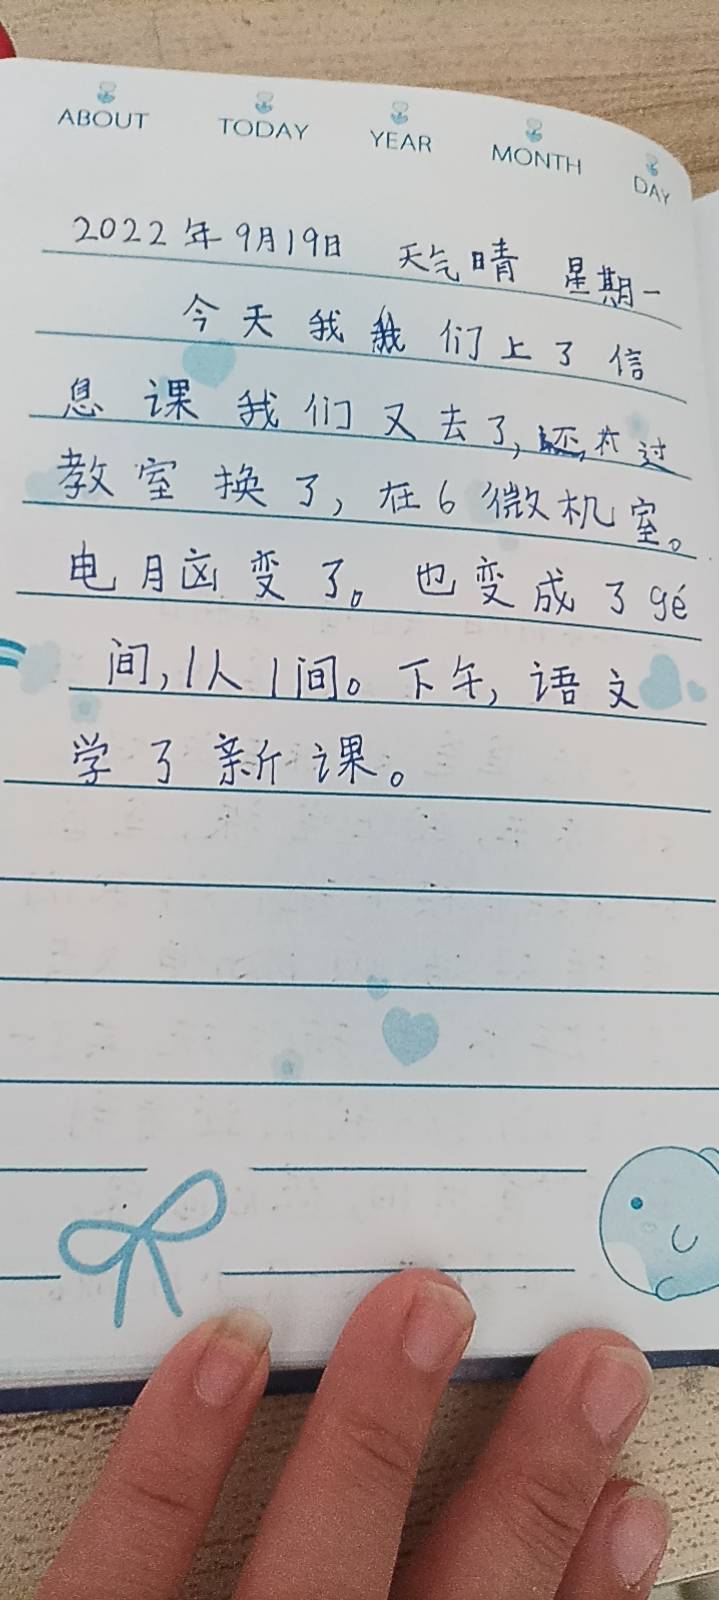 ABOUT TODAY YEAR MONTH DAY
2022年9月19日 天气晴 星期一
今天我我们上了信
息课我们又去了,不过
教室换了,在6微机室。
电脑变了。也变成了gé
间,1人1间。下午,语文
学了新课。